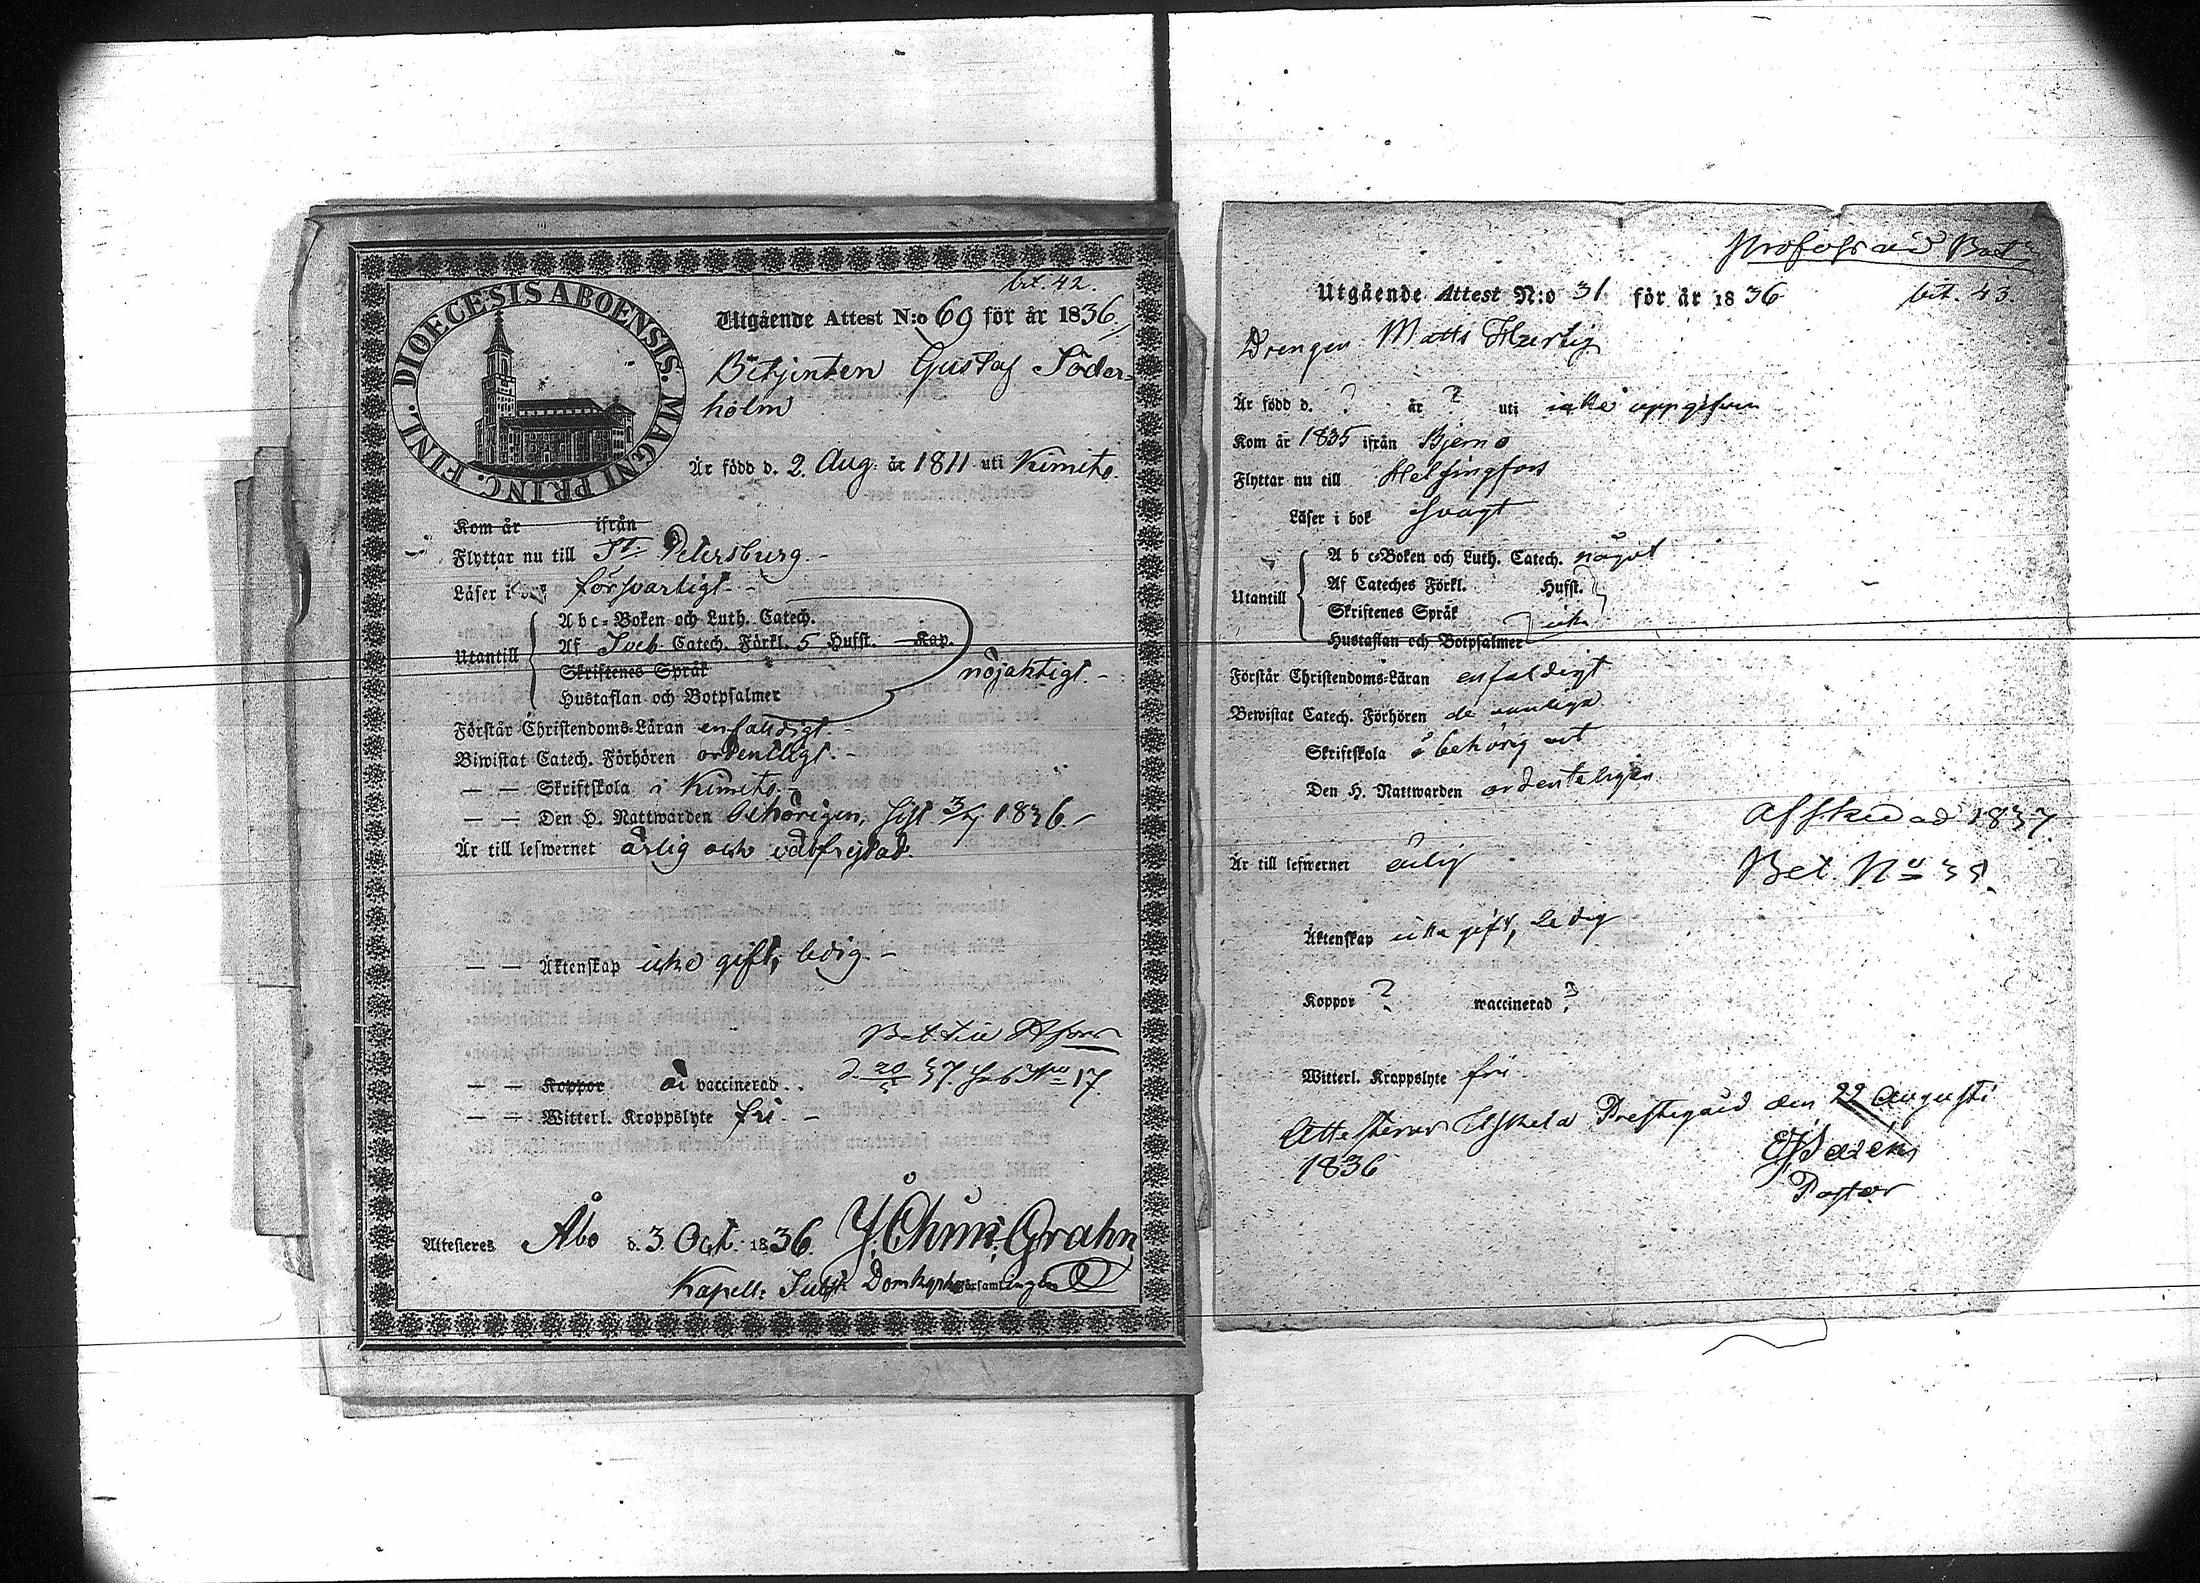 DIOECESIS ABOENSIS. MAGNI PRINC. FINL.
bil. 42.
Utgående Attest N:o 69 för år 1836
Betjenten Gustaf Söder-
holm
Är född d. 2. Aug. år 1811 uti Kimito.
Kom år ifrån
Flyttar nu till St. Petersburg. -
Läser i bok försvarligt. -
Utantill
Abc-Boken och Luth. Catech.
Af Sveb. Catech. Förkl. 5 Hufst. Kap.
Skriftenes Språk
Hustaflan och Botpsalmer
nöjaktigt. -
Förstår Christendoms-Läran enfaldigt. -
Biwistat Catech. Förhören ordentligt. -
— — Skriftskola i Kimito. -
— — Den H. Nattwarden behörigen, sist 1836. -
Är till lefwernet ärlig och välfrejdad.
— — Äktenskap icke gift, ledig. -
— — Koppor är vaccinerad. .
d. 37. N:o 17.
— — Witterl. Kroppslyte fri. -
Attesteres Åbo d. 3. Oct. 1836. Grahn
Kapell: Domkyrko församlingen
bil. 43.
Utgående Attest N:o 31 för år 1836
Drengen Matts Hurtig
Är född d. ? år ? uti icke uppgifven
Kom år 1835 ifrån Bjerno
Flyttar nu till Helsingfors
Läser i bok svagt
Utantill
A b c-Boken och Luth. Catech. något
Af Cateches Förkl. Hufst.
Skriftenes Språk
Hustaflan och Botpsalmer icke
Förstår Christendoms-Läran enfaldigt
Bewistat Catech. Förhören de vanliga
Skriftskola å behörig ort
Den H. Nattwarden ordenteligen
Afskedad 1837
Bet. No
Är till lefwernet ärlig
Äktenskap icke gift, ledig
Koppor ? waccinerad ?
Witterl. Kroppslyte fri
Attesterar Prestegård den 22 Augusti
1836
Pastor